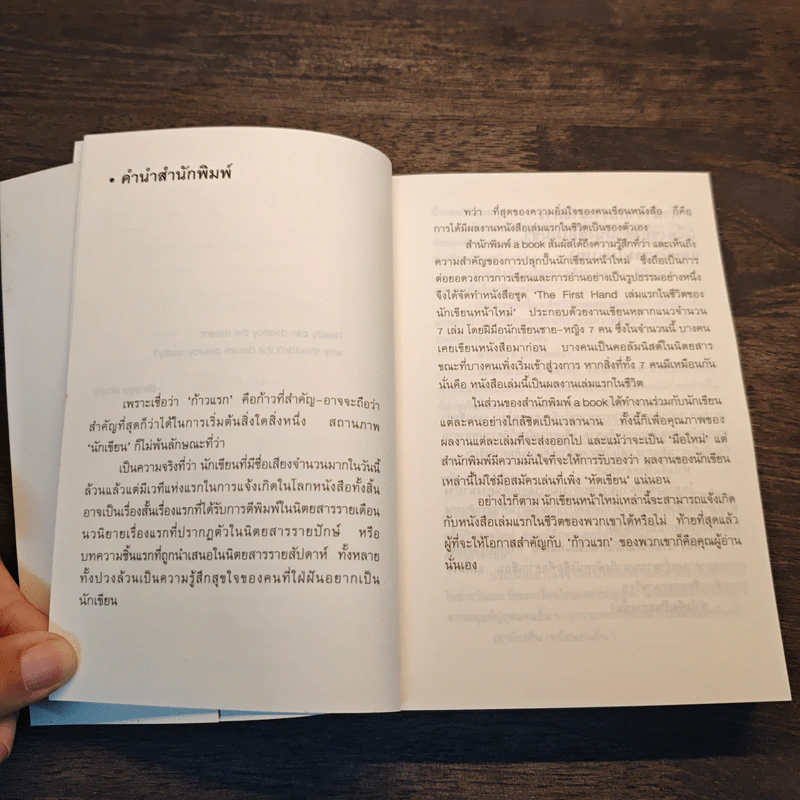 • คำนำสำนักพิมพ์
Reality can destroy the dream,
why shouldn't the dream destroy reality?
เพราะเชื่อว่า ‘ก้าวแรก’ คือก้าวที่สำคัญ-อาจจะถือว่า
สำคัญที่สุดก็ว่าได้ในการเริ่มต้นสิ่งใดสิ่งหนึ่ง สถานภาพ
‘นักเขียน’ ก็ไม่พ้นลักษณะที่ว่า
เป็นความจริงที่ว่า นักเขียนที่มีชื่อเสียงจำนวนมากในวันนี้
ล้วนแล้วแต่มีเวทีแห่งแรกในการแจ้งเกิดในโลกหนังสือทั้งสิ้น
อาจเป็นเรื่องสั้นเรื่องแรกที่ได้รับการตีพิมพ์ในนิตยสารรายเดือน
นวนิยายเรื่องแรกที่ปรากฏตัวในนิตยสารรายปักษ์ หรือ
บทความชิ้นแรกที่ถูกนำเสนอในนิตยสารรายสัปดาห์ ทั้งหลาย
ทั้งปวงล้วนเป็นความรู้สึกสุขใจของคนที่ใฝ่ฝันอยากเป็น
นักเขียน
ทว่า ที่สุดของความอิ่มใจของคนเขียนหนังสือ ก็คือ
การได้มีผลงานหนังสือเล่มแรกในชีวิตเป็นของตัวเอง
สำนักพิมพ์ a book สัมผัสได้ถึงความรู้สึกที่ว่า และเห็นถึง
ความสำคัญของการปลุกปั้นนักเขียนหน้าใหม่ ซึ่งถือเป็นการ
ต่อยอดวงการการเขียนและการอ่านอย่างเป็นรูปธรรมอย่างหนึ่ง
จึงได้จัดทำหนังสือชุด ‘The First Hand เล่มแรกในชีวิตของ
นักเขียนหน้าใหม่’ ประกอบด้วยงานเขียนหลากแนวจำนวน
7 เล่ม โดยฝีมือนักเขียนชาย-หญิง 7 คน ซึ่งในจำนวนนี้ บางคน
เคยเขียนหนังสือมาก่อน บางคนเป็นคอลัมนิสต์ในนิตยสาร
ขณะที่บางคนเพิ่งเริ่มเข้าสู่วงการ หากสิ่งที่ทั้ง 7 คนมีเหมือนกัน
นั่นคือ หนังสือเล่มนี้เป็นผลงานเล่มแรกในชีวิต
ในส่วนของสำนักพิมพ์ a book ได้ทำงานร่วมกับนักเขียน
แต่ละคนอย่างใกล้ชิดเป็นเวลานาน ทั้งนี้ก็เพื่อคุณภาพของ
ผลงานแต่ละเล่มที่จะส่งออกไป และแม้ว่าจะเป็น ‘มือใหม่’ แต่
สำนักพิมพ์มีความมั่นใจที่จะให้การรับรองว่า ผลงานของนักเขียน
เหล่านี้ไม่ใช่มือสมัครเล่นที่เพิ่ง ‘หัดเขียน’ แน่นอน
อย่างไรก็ตาม นักเขียนหน้าใหม่เหล่านี้จะสามารถแจ้งเกิด
กับหนังสือเล่มแรกในชีวิตของพวกเขาได้หรือไม่ ท้ายที่สุดแล้ว
ผู้ที่จะให้โอกาสสำคัญกับ ‘ก้าวแรก’ ของพวกเขาก็คือคุณผู้อ่าน
นั่นเอง